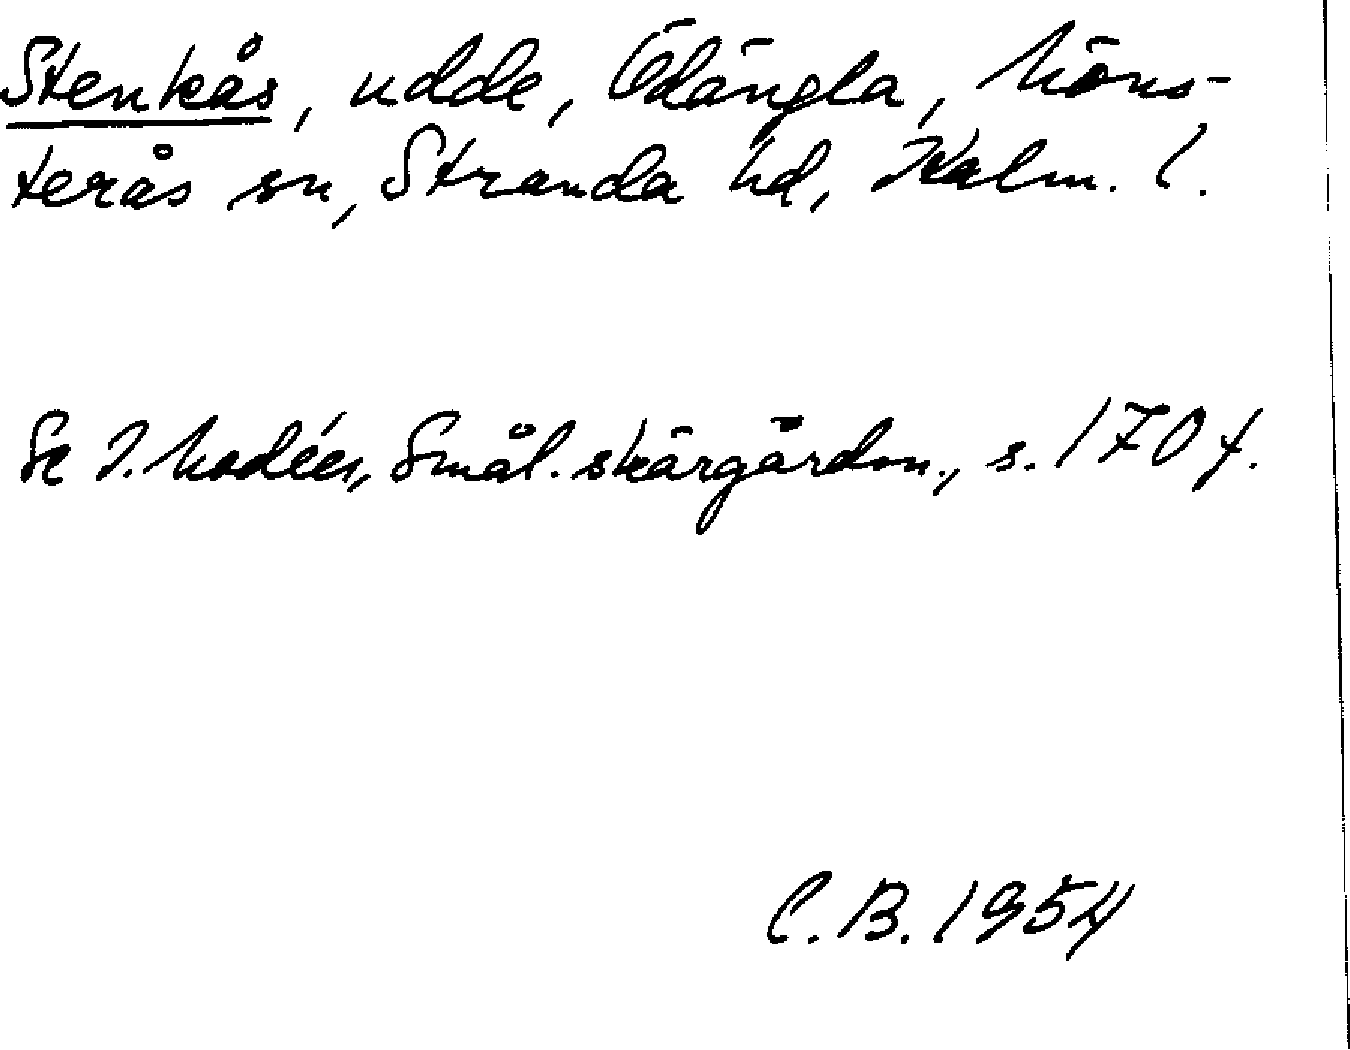 Stenkås, udde, Ödängla, Möns-
terås sn, Stranda hd, Kalm. l.
Se I. Modéer, Smål. skärgårdsn., s. 170 f.
C.B. 1954